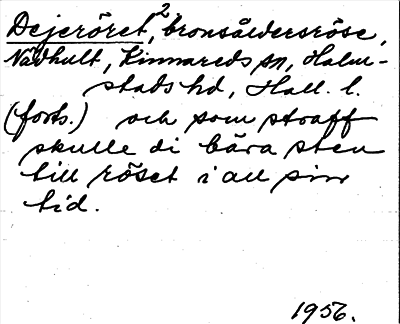 Dejeröret², bronsåldersröse,
Nadhult, Kinnareds sn, Halm-
stads hd, Hall. l.
(forts.) och som straff
skulle di bära sten
till röset i all sin
tid.
1956.